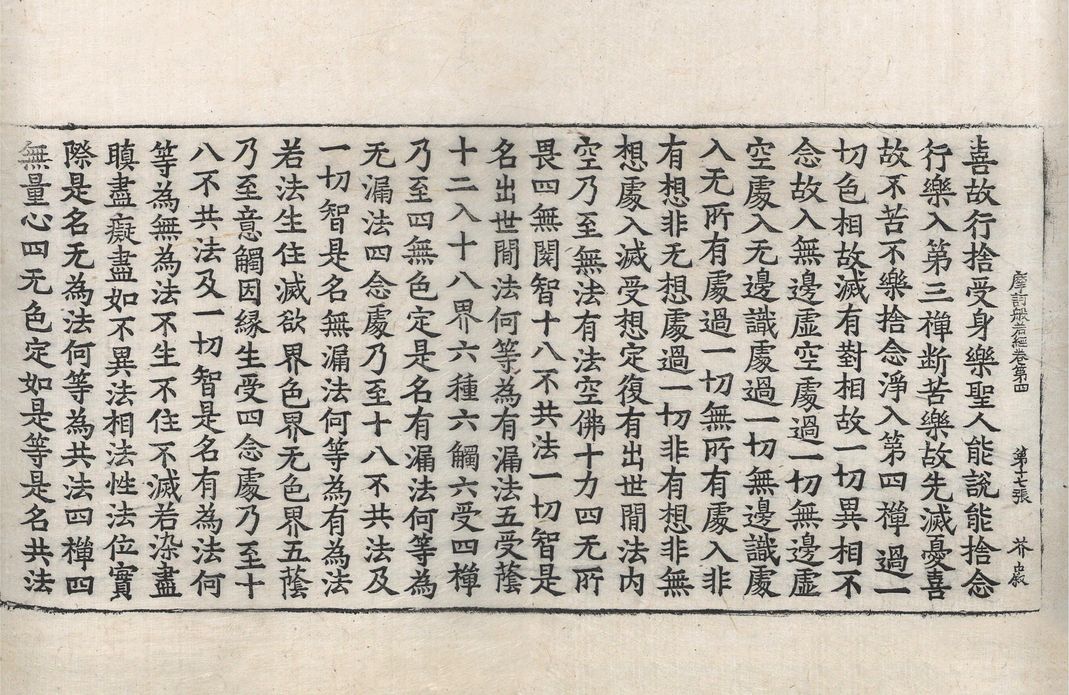 摩訶般若經卷第四 第十七張 芥
喜故行捨受身樂聖人能說能捨念
行樂入第三禪断苦樂故先滅憂喜
故不苦不樂捨念淨入第四禪過一
切色相故滅有對相故一切異相不
念故入無邊虛空處過一切無邊虛
空處入无邊識處過一切無邊識處
入无所有處過一切無所有處入非
有想非无想處過一切非有想非無
想處入滅受想定復有出世閒法内
空乃至無法有法空佛十力四无所
畏四無閡智十八不共法一切智是
名出世閒法何等為有漏法五受䕃
十二入十八界六種六觸六受四禪
乃至四無色定是名有漏法何等為
无漏法四念處乃至十八不共法及
一切智是名無漏法何等為有為法
若法生住滅欲界色界无色界五䕃
乃至意觸因緣生受四念處乃至十
八不共法及一切智是名有為法何
等為無為法不生不住不滅若染盡
瞋盡癡盡如不異法相法性法位實
際是名无為法何等為共法四禪四
無量心四无色定如是等是名共法